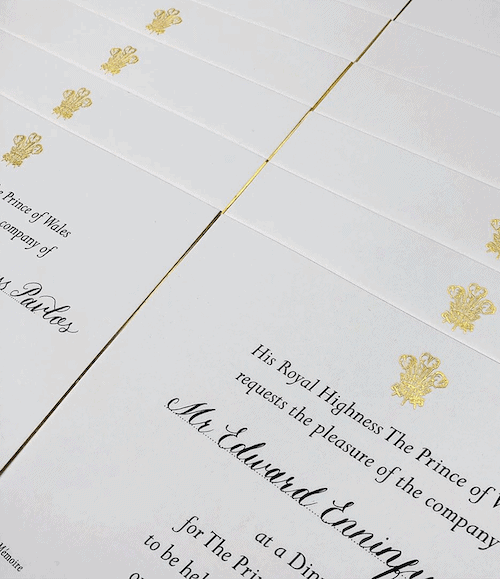 Prince of Wales
company of
Pavlos
Mémoire
His Royal Highness The Prince of
requests the pleasure of the company
Mr Edward Enninfu
at a Din
for The Prin
to be hel